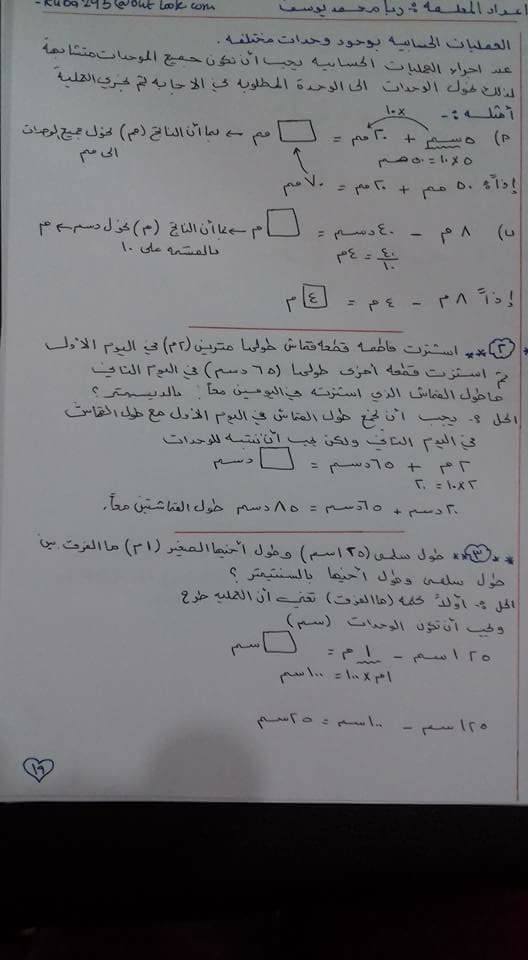 إعداد المعلمة : ربا محمد يوسف
-Ruba295@outlook.com
العمليات الحسابية بوجود وحدات مختلفه .
عند اجراء العمليات الحسابيه يجب أن تكون جميع الوحدات متشابهة
لذلك نحول الوحدات الى الوحدة المطلوبه في الاجابه ثم نجري العملية
أمثله :-
١٠×
٥ سم + ٢٠ مم = □ مم ← بما أن الناتج (مم) نحول جميع الوحدات
٥ × ١٠ = ٥٠ مم
الى مم
إذاً : ٥٠ مم + ٢٠ مم = ٧٠ مم
ب) ٨ م - ٤٠ دسم = □ م ← بما أن الناتج (م) نحول دسم ← م
٤٠/١٠ = ٤ م
بالقسمه على ١٠
إذاً ٨ م - ٤ م = ٤ م
** ٢ اشترت فاطمه قطعه قماش طولها مترين (٢م) في اليوم الاول
ثم اشترت قطعه أخرى طولها (٦٥ دسم) في اليوم الثاني
ما طول القماش الذي اشترته في اليومين معاً ؟ بالديسمتر ؟
الحل :- يجب أن نجمع طول القماش في اليوم الاول مع طول القماش
في اليوم الثاني ولكن يجب أن ننتبه للوحدات
٢ م + ٦٥ دسم = □ دسم
٢ × ١٠ = ٢٠
٢٠ دسم + ٦٥ دسم = ٨٥ دسم طول القماشتين معاً .
** ٣ ** طول سلمى (١٢٥ سم) وطول أخيها الصغير (١ م) ما الفرق بين
طول سلمى وطول أخيها بالسنتيمتر ؟
الحل :- أولاً كلمة (ما الفرق) تعني أن العمليه طرح
ويجب أن تكون الوحدات (سم)
١٢٥ سم - ١ م = □ سم
١م × ١٠٠ = ١٠٠ سم
١٢٥ سم - ١٠٠ سم = ٢٥ سم
١٩